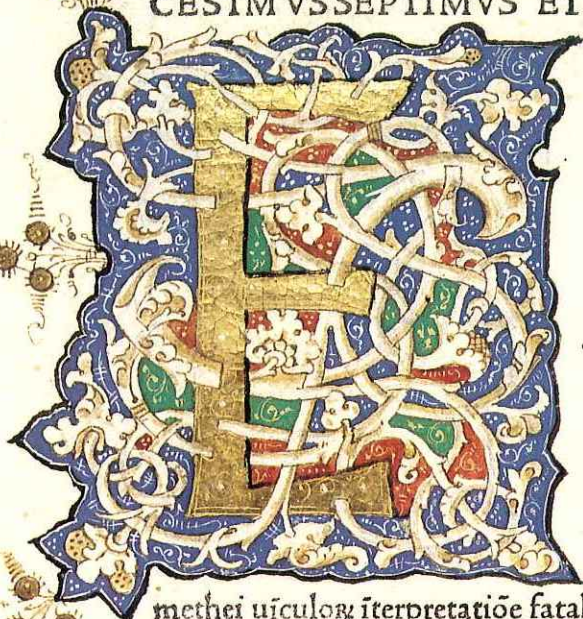 CESIMVSSEPTIMVS ET
E
methei uīculoꝝ īterpretatiōe fatal